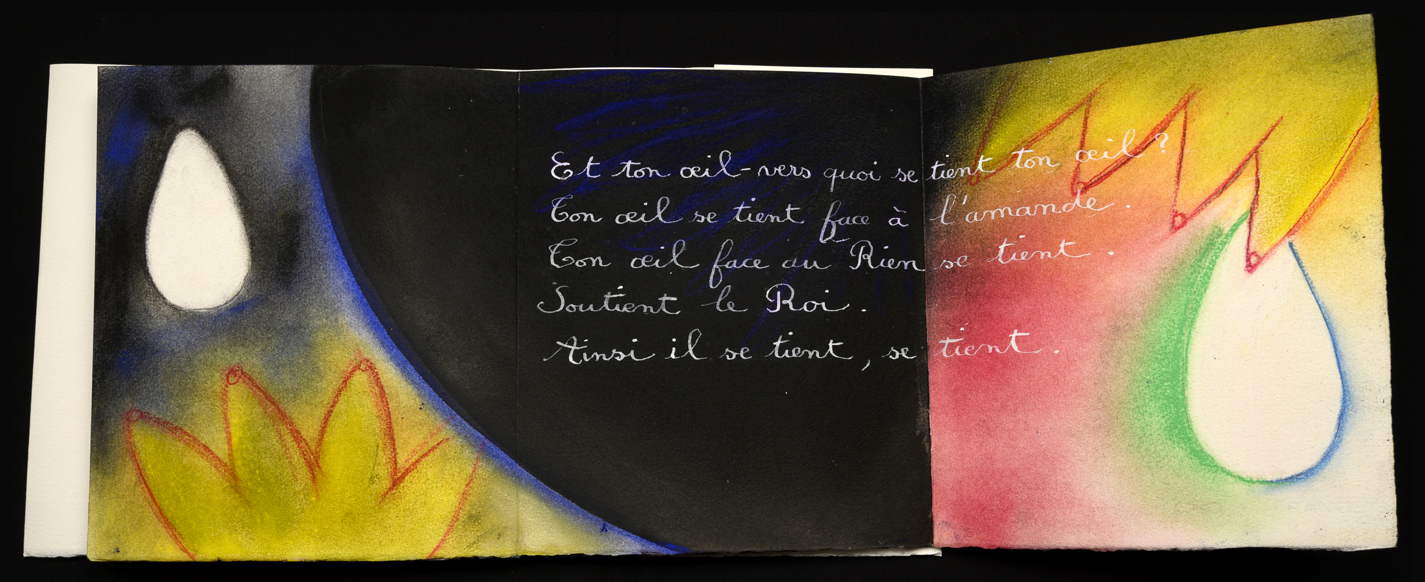 Et ton œil-vers quoi se tient ton œil ?
Ton œil se tient face à l'amande.
Ton œil face au Rien se tient.
Soutient le Roi.
Ainsi il se tient, se tient.